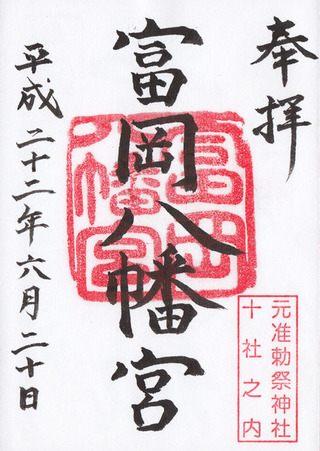 奉拝
元准勅祭神社
十社之内
富岡八幡宮
富岡八幡宮
平成二十二年六月二十日